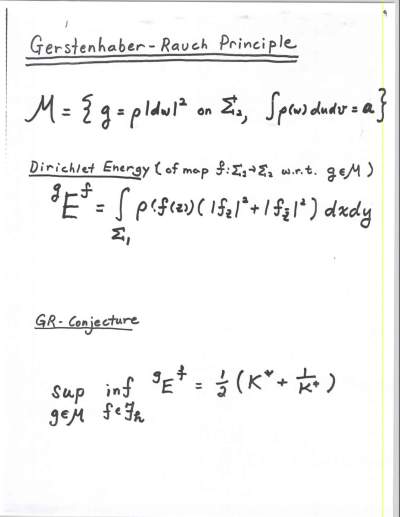 Gerstenhaber-Rauch Principle
M = { g = ρ|dw|² on Σ₂, ∫ρ(w)dudv = a }
Dirichlet Energy (of map f:Σ₁→Σ₂ w.r.t. g∈M)
ᵍE^f = ∫_Σ₁ ρ(f(z))(|f_z|² + |f_z̄|²) dxdy
GR-Conjecture
sup inf ᵍE^f = 1/2 (K* + 1/K*)
g∈M f∈ℱₕ